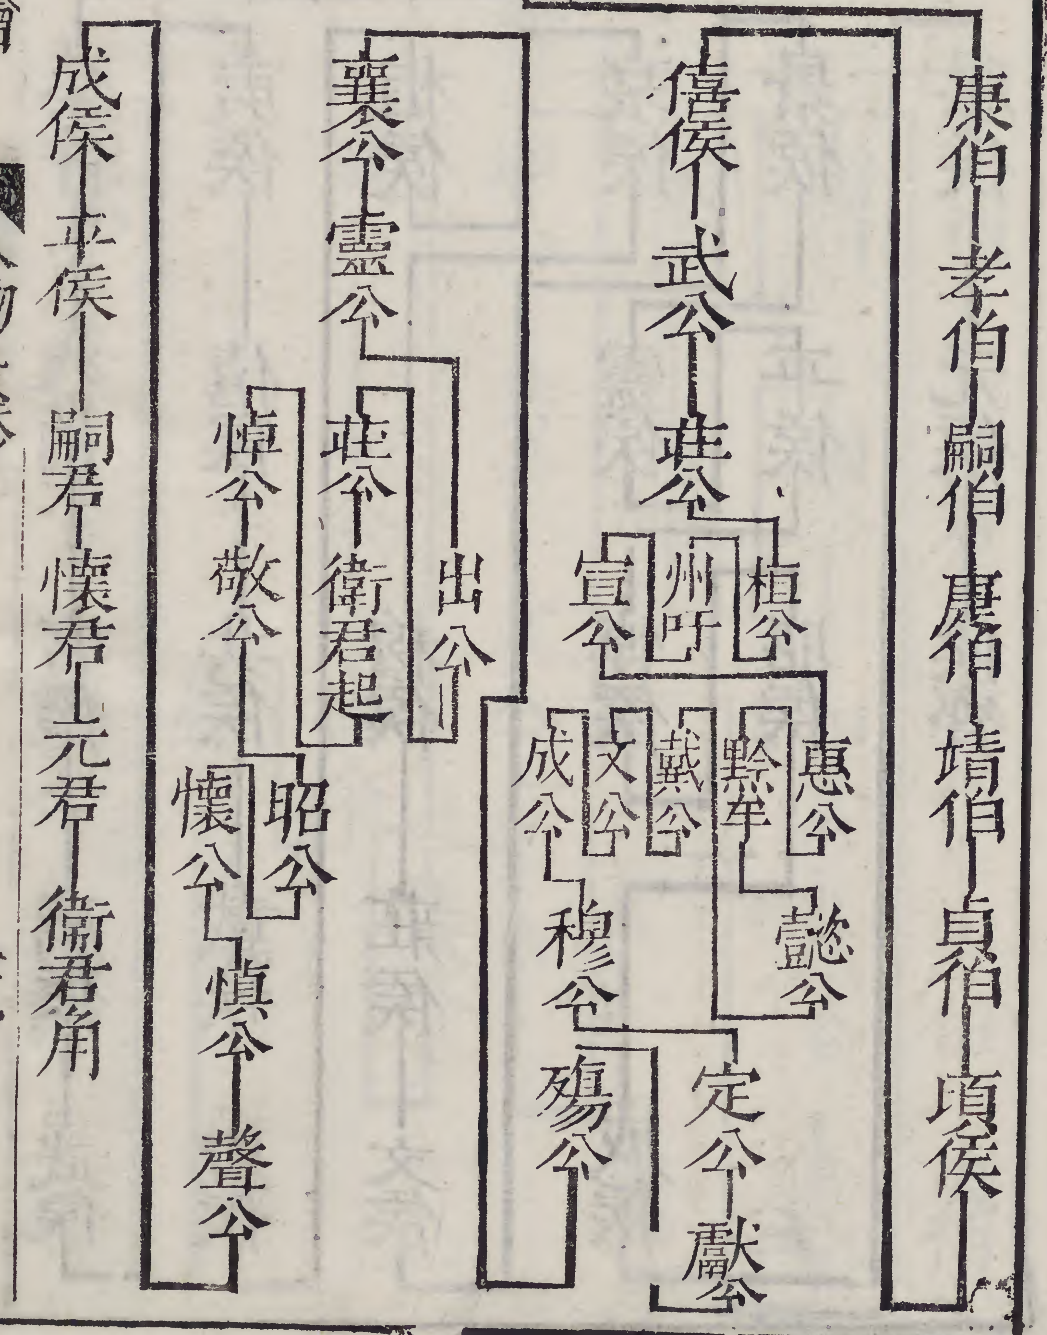 康伯 孝伯 嗣伯 庹伯 靖伯 貞伯 頃侯
僖侯 武公 莊公
桓公
州吁
宣公
惠公
黔牟
戴公
文公
成公
懿公
穆公
定公 獻公
殤公
襄公 靈公
出公
莊公 衛君起
悼公 敬公
昭公
懷公
慎公 聲公
成侯 平侯 嗣君 懷君 元君 衛君角